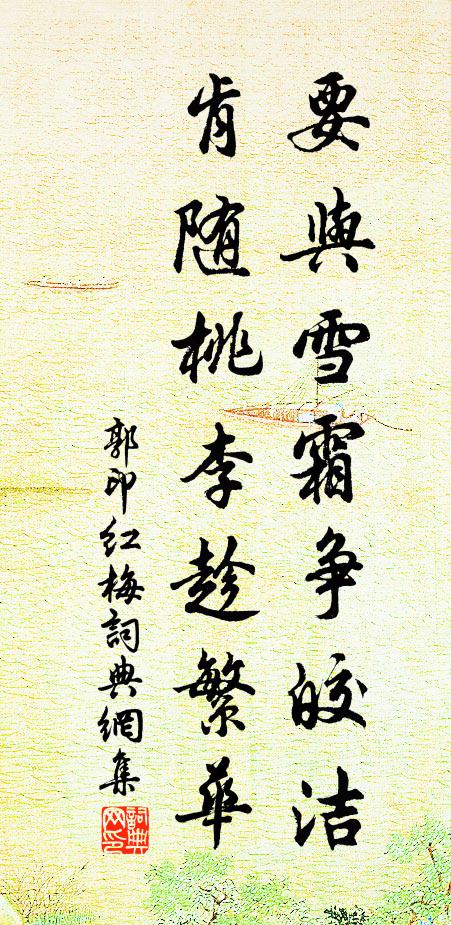 要與雪霜争皎洁
肯随桃李趁繁華
郭印红梅詞典網集
詞典网印